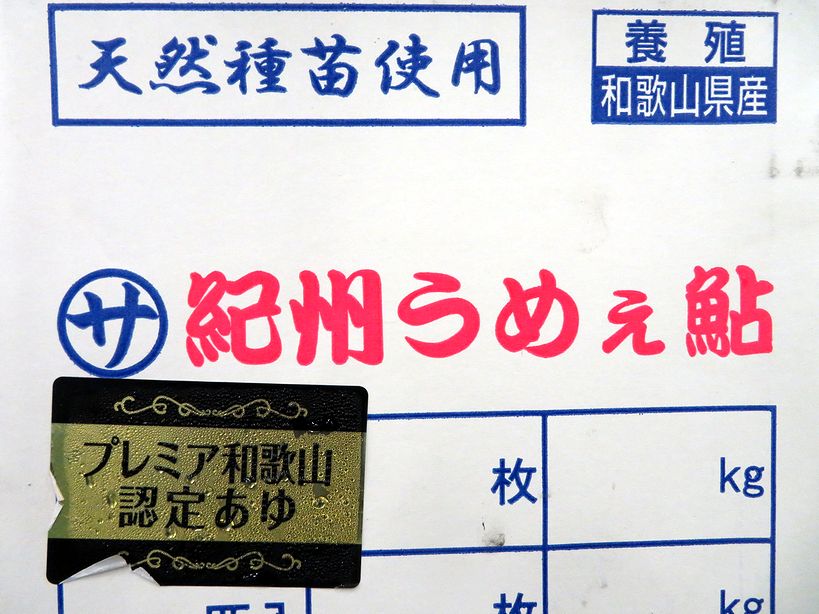 天然種苗使用
養殖
和歌山県産
サ 紀州うめぇ鮎
プレミア和歌山
認定あゆ
枚 kg
枚 kg